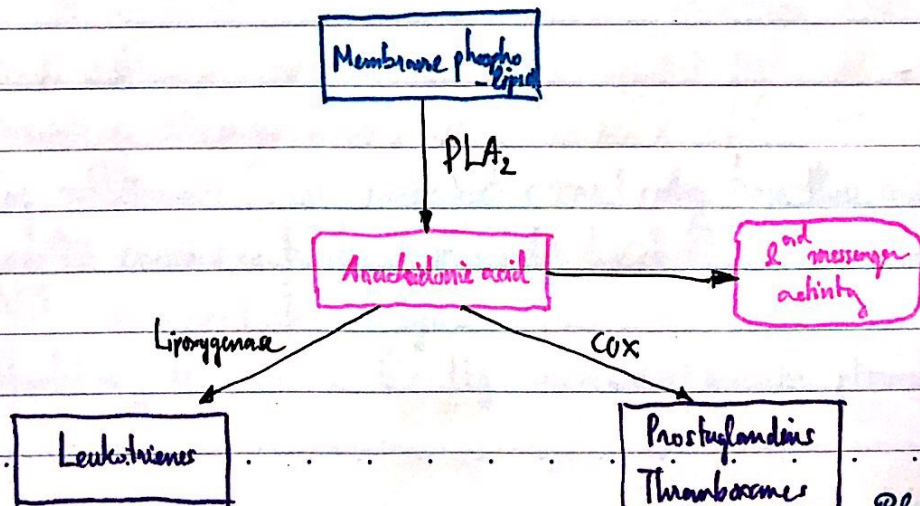 Membrane phospho
- lipid
PLA₂
Arachidonic acid
2nd messenger
activity
Lipoxygenase
COX
Leukotrienes
Prostaglandins
Thromboxanes